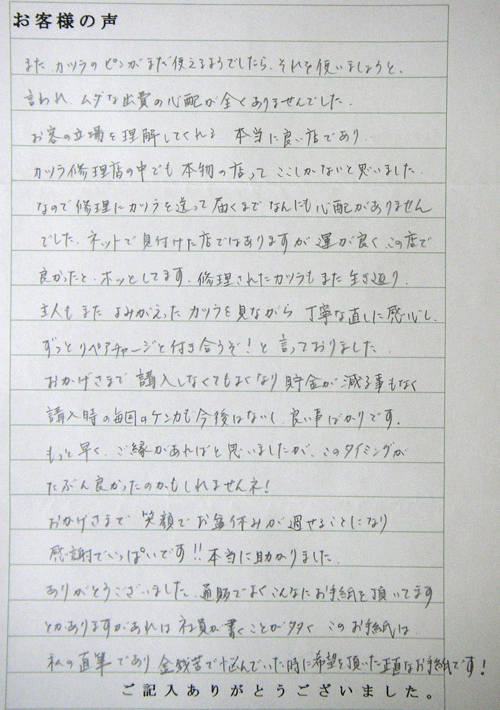 お客様の声
また、カツラのピンがまだ使えるようでしたら、それを使いましょうと、
言われ、ムダな出費の心配が全くありませんでした。
お客の立場を理解してくれる 本当に良い店であり
カツラ修理店の中でも 本物の店って ここしかないと思いました。
なので修理にカツラを送って届くまでなんにも心配がありません
でした。ネットで見付けた店ではありますが 運が良く この店で
良かったと、ホッとしてます。修理されたカツラもまた生き返り、
主人もまた よみがえった カツラを見ながら 丁寧な直しに感心し、
ずっとリペアチャージと付き合うぞ!と言っておりました。
おかげさまで 購入しなくてもよくなり 貯金が減る事もなく
購入時の毎回のケンカも今後はないし、良い事ばかりです。
もっと早く、ご縁があればと思いましたが、このタイミングが
たぶん良かったのかもしれませんネ!
おかげさまで 笑顔でお盆休みが過せることになり
感謝でいっぱいです!!本当に助かりました。
ありがとうございました。通販でよくこんなにお手紙を頂いてます
とかありますがあれは社員が書くことが多く このお手紙は
私の直筆であり 金銭苦で悩んでいた時に希望を頂いた正直なお手紙です!
ご記入ありがとうございました。